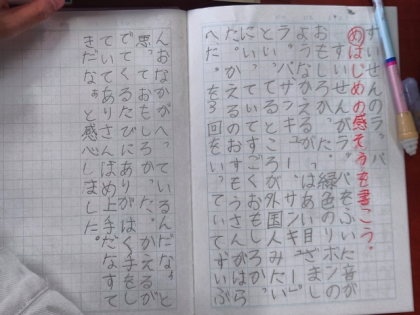 すいせんのラッパ
めはじめの感そうを書こう。
すいせんがラッパをふいた音が
おもしろかった。緑色のリボンの
ような
サンキュー、サンキュー
といっているところが外国人みたい
に
すごくおもしろかっ
た。かえるのおすもうさんがはら
へった。を3回もいっていてずいぶ
んおなかがへっているんだなぁと
思っておもしろかった。かえるが
でてくるたびにありがはく手をし
ていてありさんはめ上手だなすて
きだなぁと感心しました。